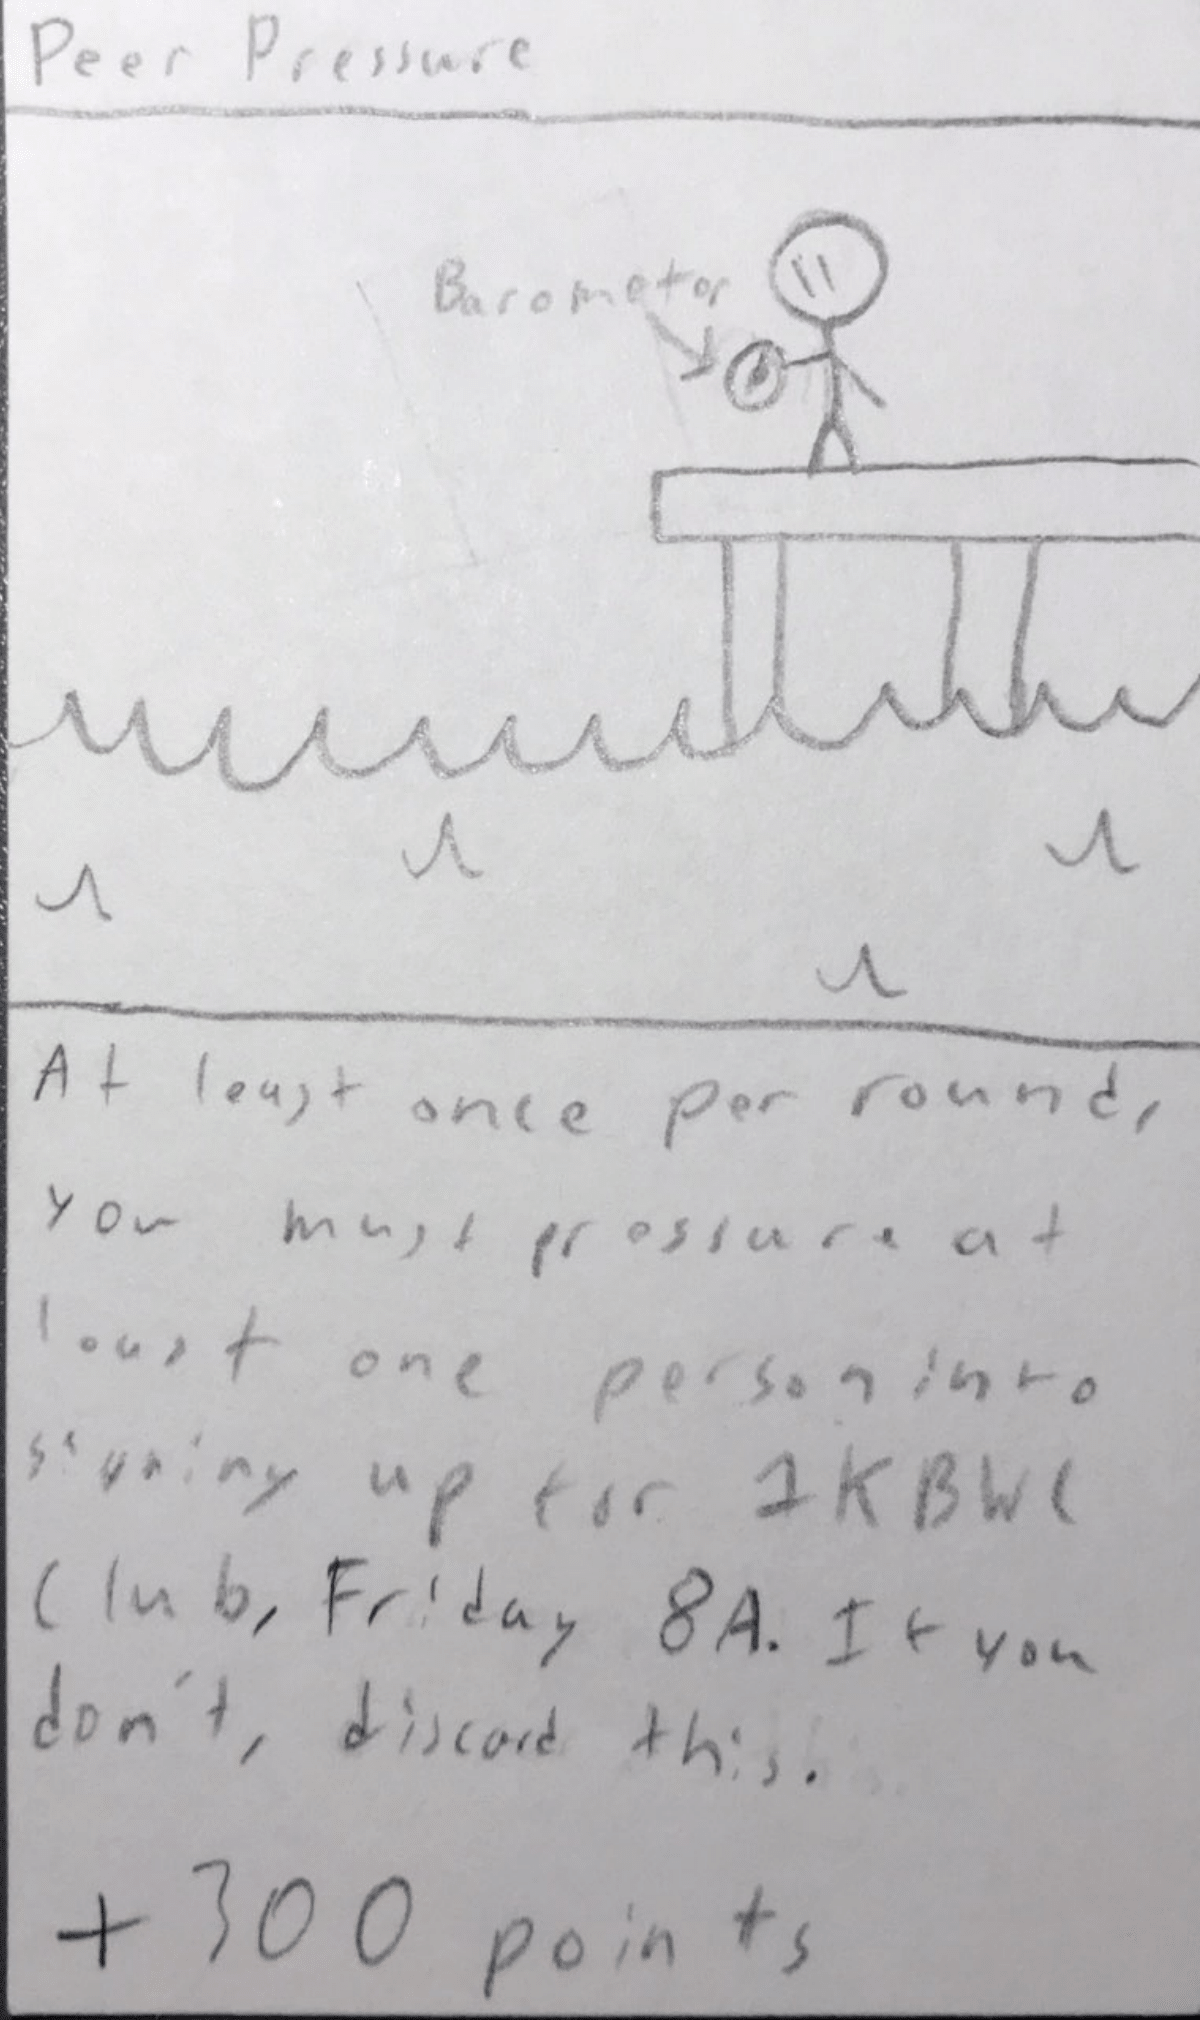 Peer Pressure
Barometor
At least once per round,
you must pressure at
least one person into
signing up for 1KBWC
Club, Friday 8A. If you
don't, discard this.
+300 points